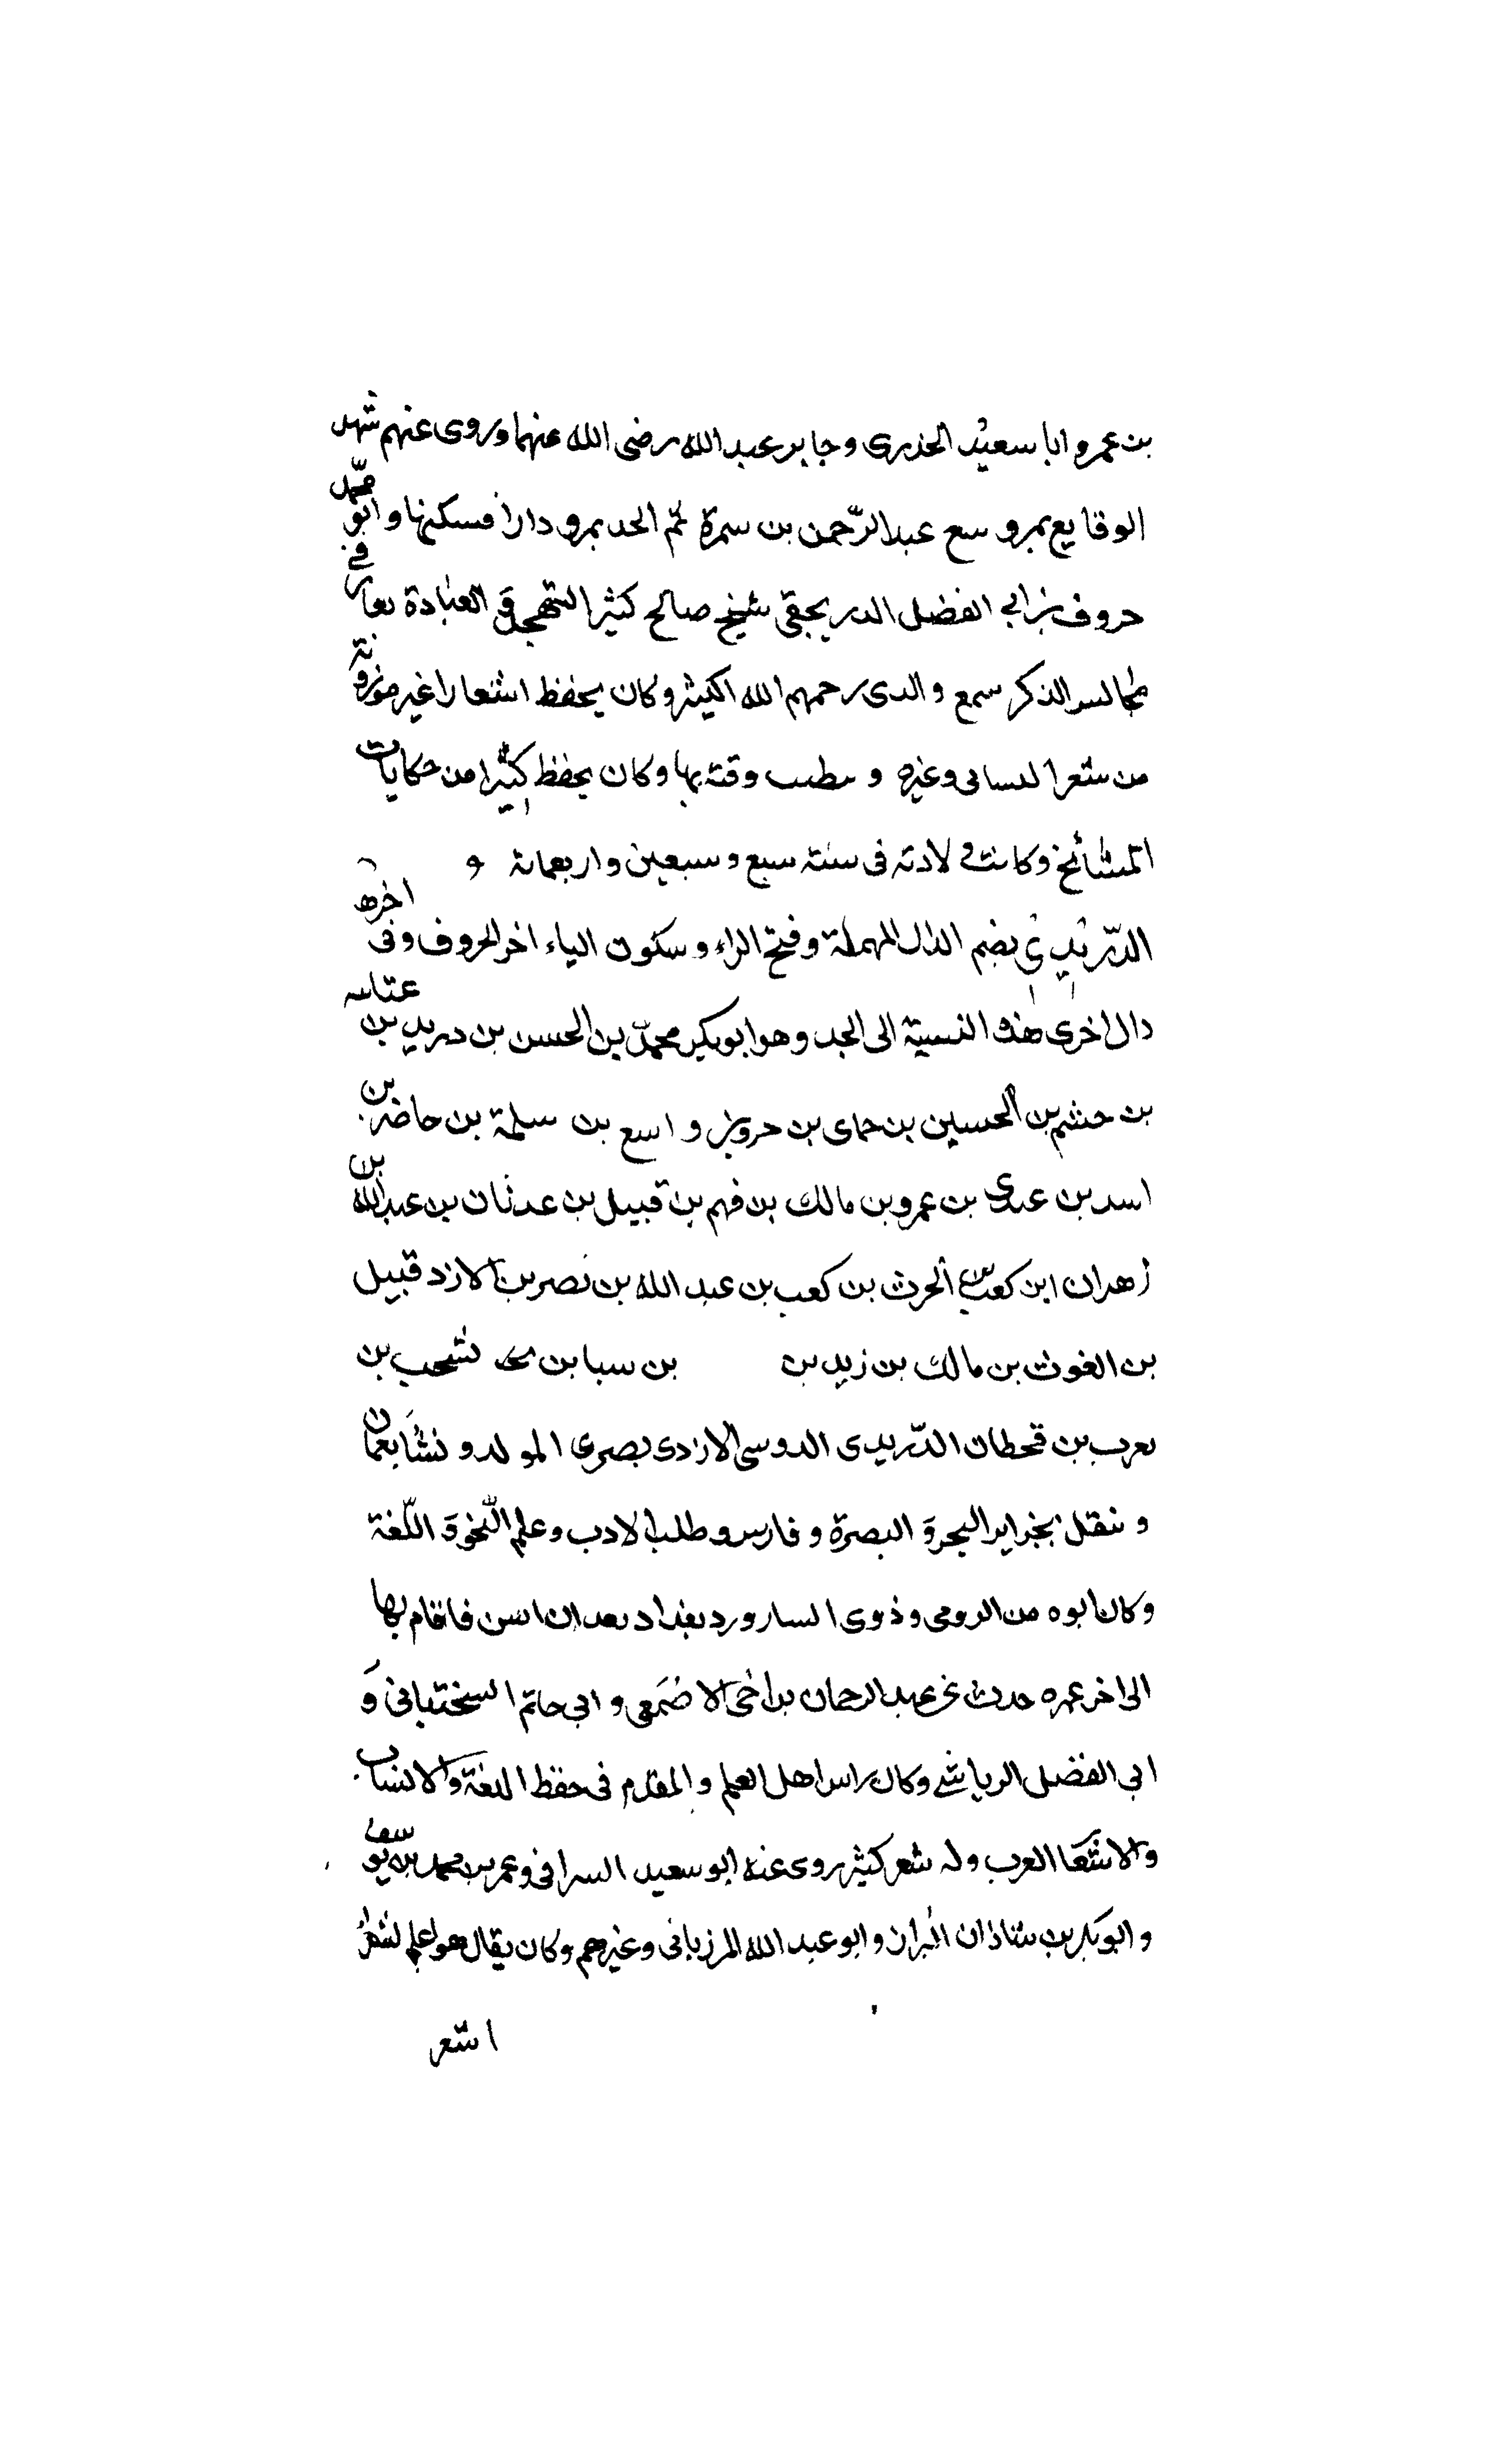 بن عمرو ابا سعيد الخدرى وجابر عبد الله رضى الله عنهما وروى عنهم شهد
الوقايع بمرو سمع عبد الرّحمن بن سمرة ثم اتخذ بمرو دارا فسكنها وابو محمّد
حروف بن ابي الفضل الدريجقى شيخ صالح كثير التهجد فى العبادة فى
مجالس الذكر سمع والدى رحمهم الله الكثير وكان يحفظ اشعارا غير موزونة
من شعر وغيره و وقته بها وكان يحفظ كثيرا من حكايات
المشائخ وكانت ولادته فى سنة سبع وسبعين واربعمائة و
الدّريدي بضم الدال المهملة وفتح الراء وسكون الياء اخر الحروف وفى اخرها
دال اخرى هذه النسبة الى الجد وهو ابو بكر محمدّ بن الحسن بن دريد بن عتاسه
بن حشم بن الحسين بن حماى بن حرو بن واسع بن سلمة بن حاضر بن
اسد بن عدى بن عمرو بن مالك بن فهم بن قبيل بن عدنان بن عبد الله بن
زهران ابن كعب بن الحرث بن كعب بن عبد الله بن نصر بن الازد قبيل
بن الغوث بن مالك بن زيد بن بن سبا بن يشحب بن
يعرب بن قحطان الدّريدى الدوسى الازدى بصرى المولد ونشَأ بعمان
و تنقل بجزاير البحر وَ البصرة وفارس وطلب الادب وعلم النّحو وَ اللّغة
وكان ابوه من الرومى وذوى اليسار ورد بغداد بعد ان اسن فاقام بها
الى اخر عمره حدث عن عبد الرحمان بن اخى الاصمعى وابي حاتم السختيانى وَ
ابي الفضل الرياشي وكان راس اهل العلم والمقدم فى حفظ اللغة والانساب
والاشعار العرب وله شعر كثير روى عنه ابو سعيد السرافى وعمر بن محمد بن يوسف
وابو بكر بن شاذان البزاز وابو عبد الله المرزبانى وغيرهم وكان يقال هو اعلم الشعراء
اشعر